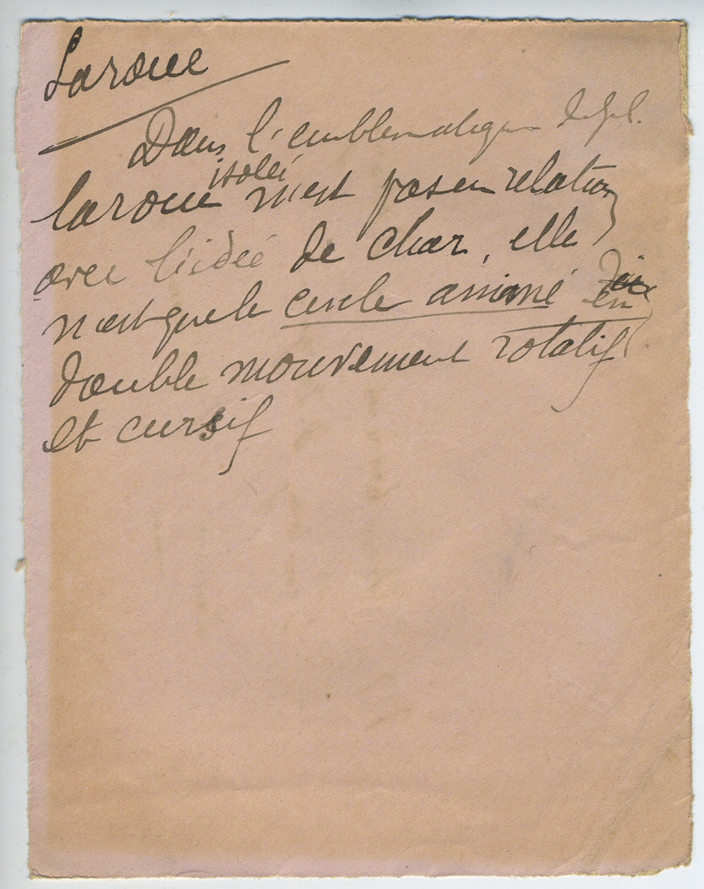 La roue
Dans l'emblematique
isolée
la roue n'est pas en relation
avec l'idée de char, elle
n'est que le cercle animé en
double mouvement rotatif
et cursif